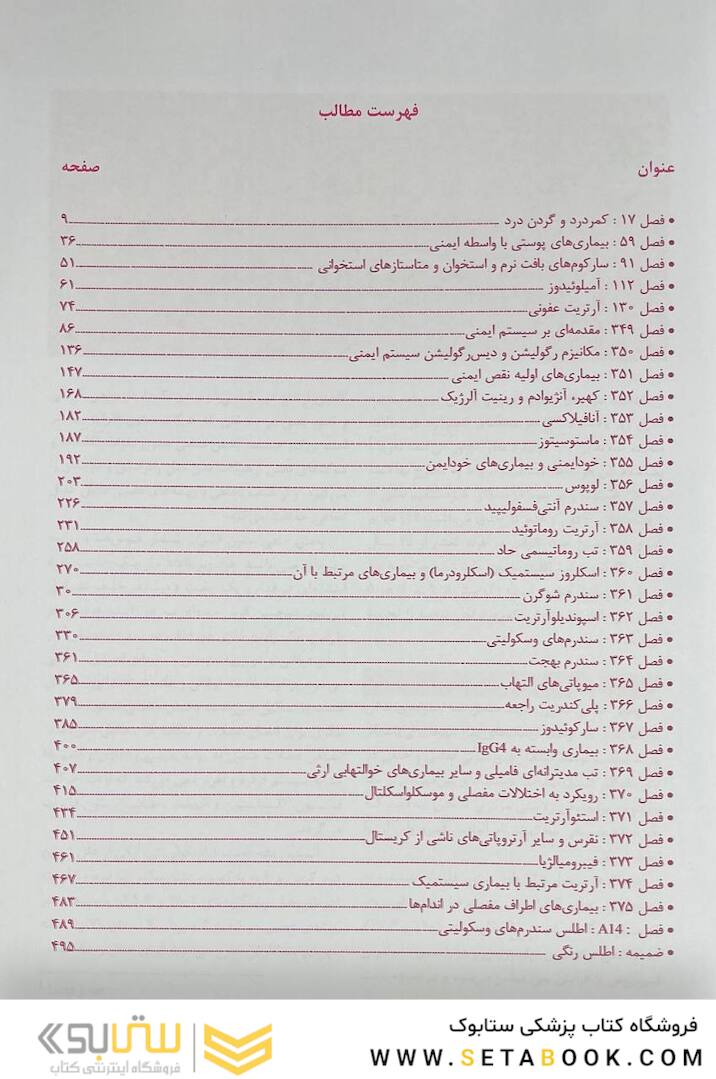 فهرست مطالب
عنوان صفحه
• فصل ۱۷ : کمردرد و گردن درد ۹
• فصل ۵۹ : بیماری‌های پوستی با واسطه ایمنی ۳۶
• فصل ۹۱ : سارکوم‌های بافت نرم و استخوان و متاستازهای استخوانی ۵۱
• فصل ۱۱۲ : آمیلوئیدوز ۶۱
• فصل ۱۳۰ : آرتریت عفونی ۷۴
• فصل ۳۴۹ : مقدمه‌ای بر سیستم ایمنی ۸۶
• فصل ۳۵۰ : مکانیزم رگولیشن و دیس‌رگولیشن سیستم ایمنی ۱۳۶
• فصل ۳۵۱ : بیماری‌های اولیه نقص ایمنی ۱۴۷
• فصل ۳۵۲ : کهیر، آنژیوادم و رینیت آلرژیک ۱۶۸
• فصل ۳۵۳ : آنافیلاکسی ۱۸۲
• فصل ۳۵۴ : ماستوسیتوز ۱۸۷
• فصل ۳۵۵ : خودایمنی و بیماری‌های خودایمن ۱۹۲
• فصل ۳۵۶ : لوپوس ۲۰۳
• فصل ۳۵۷ : سندرم آنتی‌فسفولیپید ۲۲۶
• فصل ۳۵۸ : آرتریت روماتوئید ۲۳۱
• فصل ۳۵۹ : تب روماتیسمی حاد ۲۵۸
• فصل ۳۶۰ : اسکلروز سیستمیک (اسکلرودرما) و بیماری‌های مرتبط با آن ۲۷۰
• فصل ۳۶۱ : سندرم شوگرن ۳۰
• فصل ۳۶۲ : اسپوندیلوآرتریت ۳۰۶
• فصل ۳۶۳ : سندرم‌های وسکولیتی ۳۳۰
• فصل ۳۶۴ : سندرم بهجت ۳۶۱
• فصل ۳۶۵ : میوپاتی‌های التهاب ۳۶۵
• فصل ۳۶۶ : پلی‌کندریت راجعه ۳۷۹
• فصل ۳۶۷ : سارکوئیدوز ۳۸۵
• فصل ۳۶۸ : بیماری وابسته به IgG4 ۴۰۰
• فصل ۳۶۹ : تب مدیترانه‌ای فامیلی و سایر بیماری‌های خوالتهابی ارثی ۴۰۷
• فصل ۳۷۰ : رویکرد به اختلالات مفصلی و موسکلواسکلتال ۴۱۵
• فصل ۳۷۱ : استئوآرتریت ۴۳۴
• فصل ۳۷۲ : نقرس و سایر آرتروپاتی‌های ناشی از کریستال ۴۵۱
• فصل ۳۷۳ : فیبرومیالژیا ۴۶۱
• فصل ۳۷۴ : آرتریت مرتبط با بیماری سیستمیک ۴۶۷
• فصل ۳۷۵ : بیماری‌های اطراف مفصلی در اندام‌ها ۴۸۳
• فصل : A14 : اطلس سندرم‌های وسکولیتی ۴۸۹
• ضمیمه : اطلس رنگی ۴۹۵
فروشگاه کتاب پزشکی ستابوک
WWW.SETABOOK.COM
ستابوک
فروشگاه اینترنتی کتاب